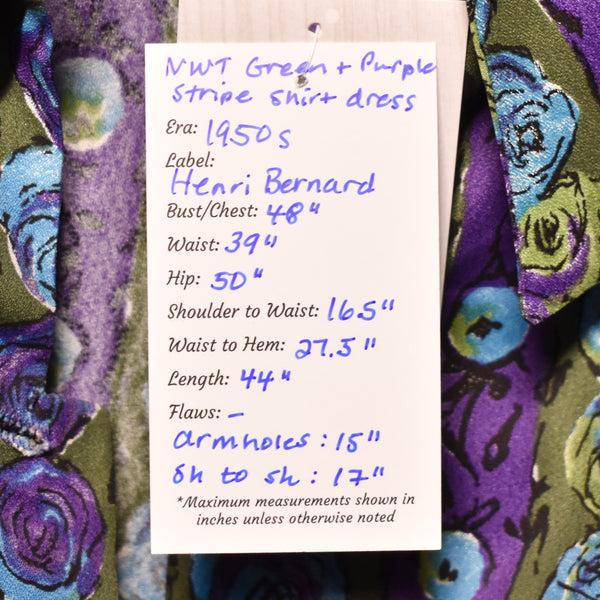 NWT Green + Purple
Stripe Shirt dress
Era: 1950s
Label:
Henri Bernard
Bust/Chest: 48"
Waist: 39"
Hip: 50"
Shoulder to Waist: 16.5"
Waist to Hem: 27.5"
Length: 44"
Flaws: –
armholes : 15"
Sh to sh : 17"
*Maximum measurements shown in
inches unless otherwise noted